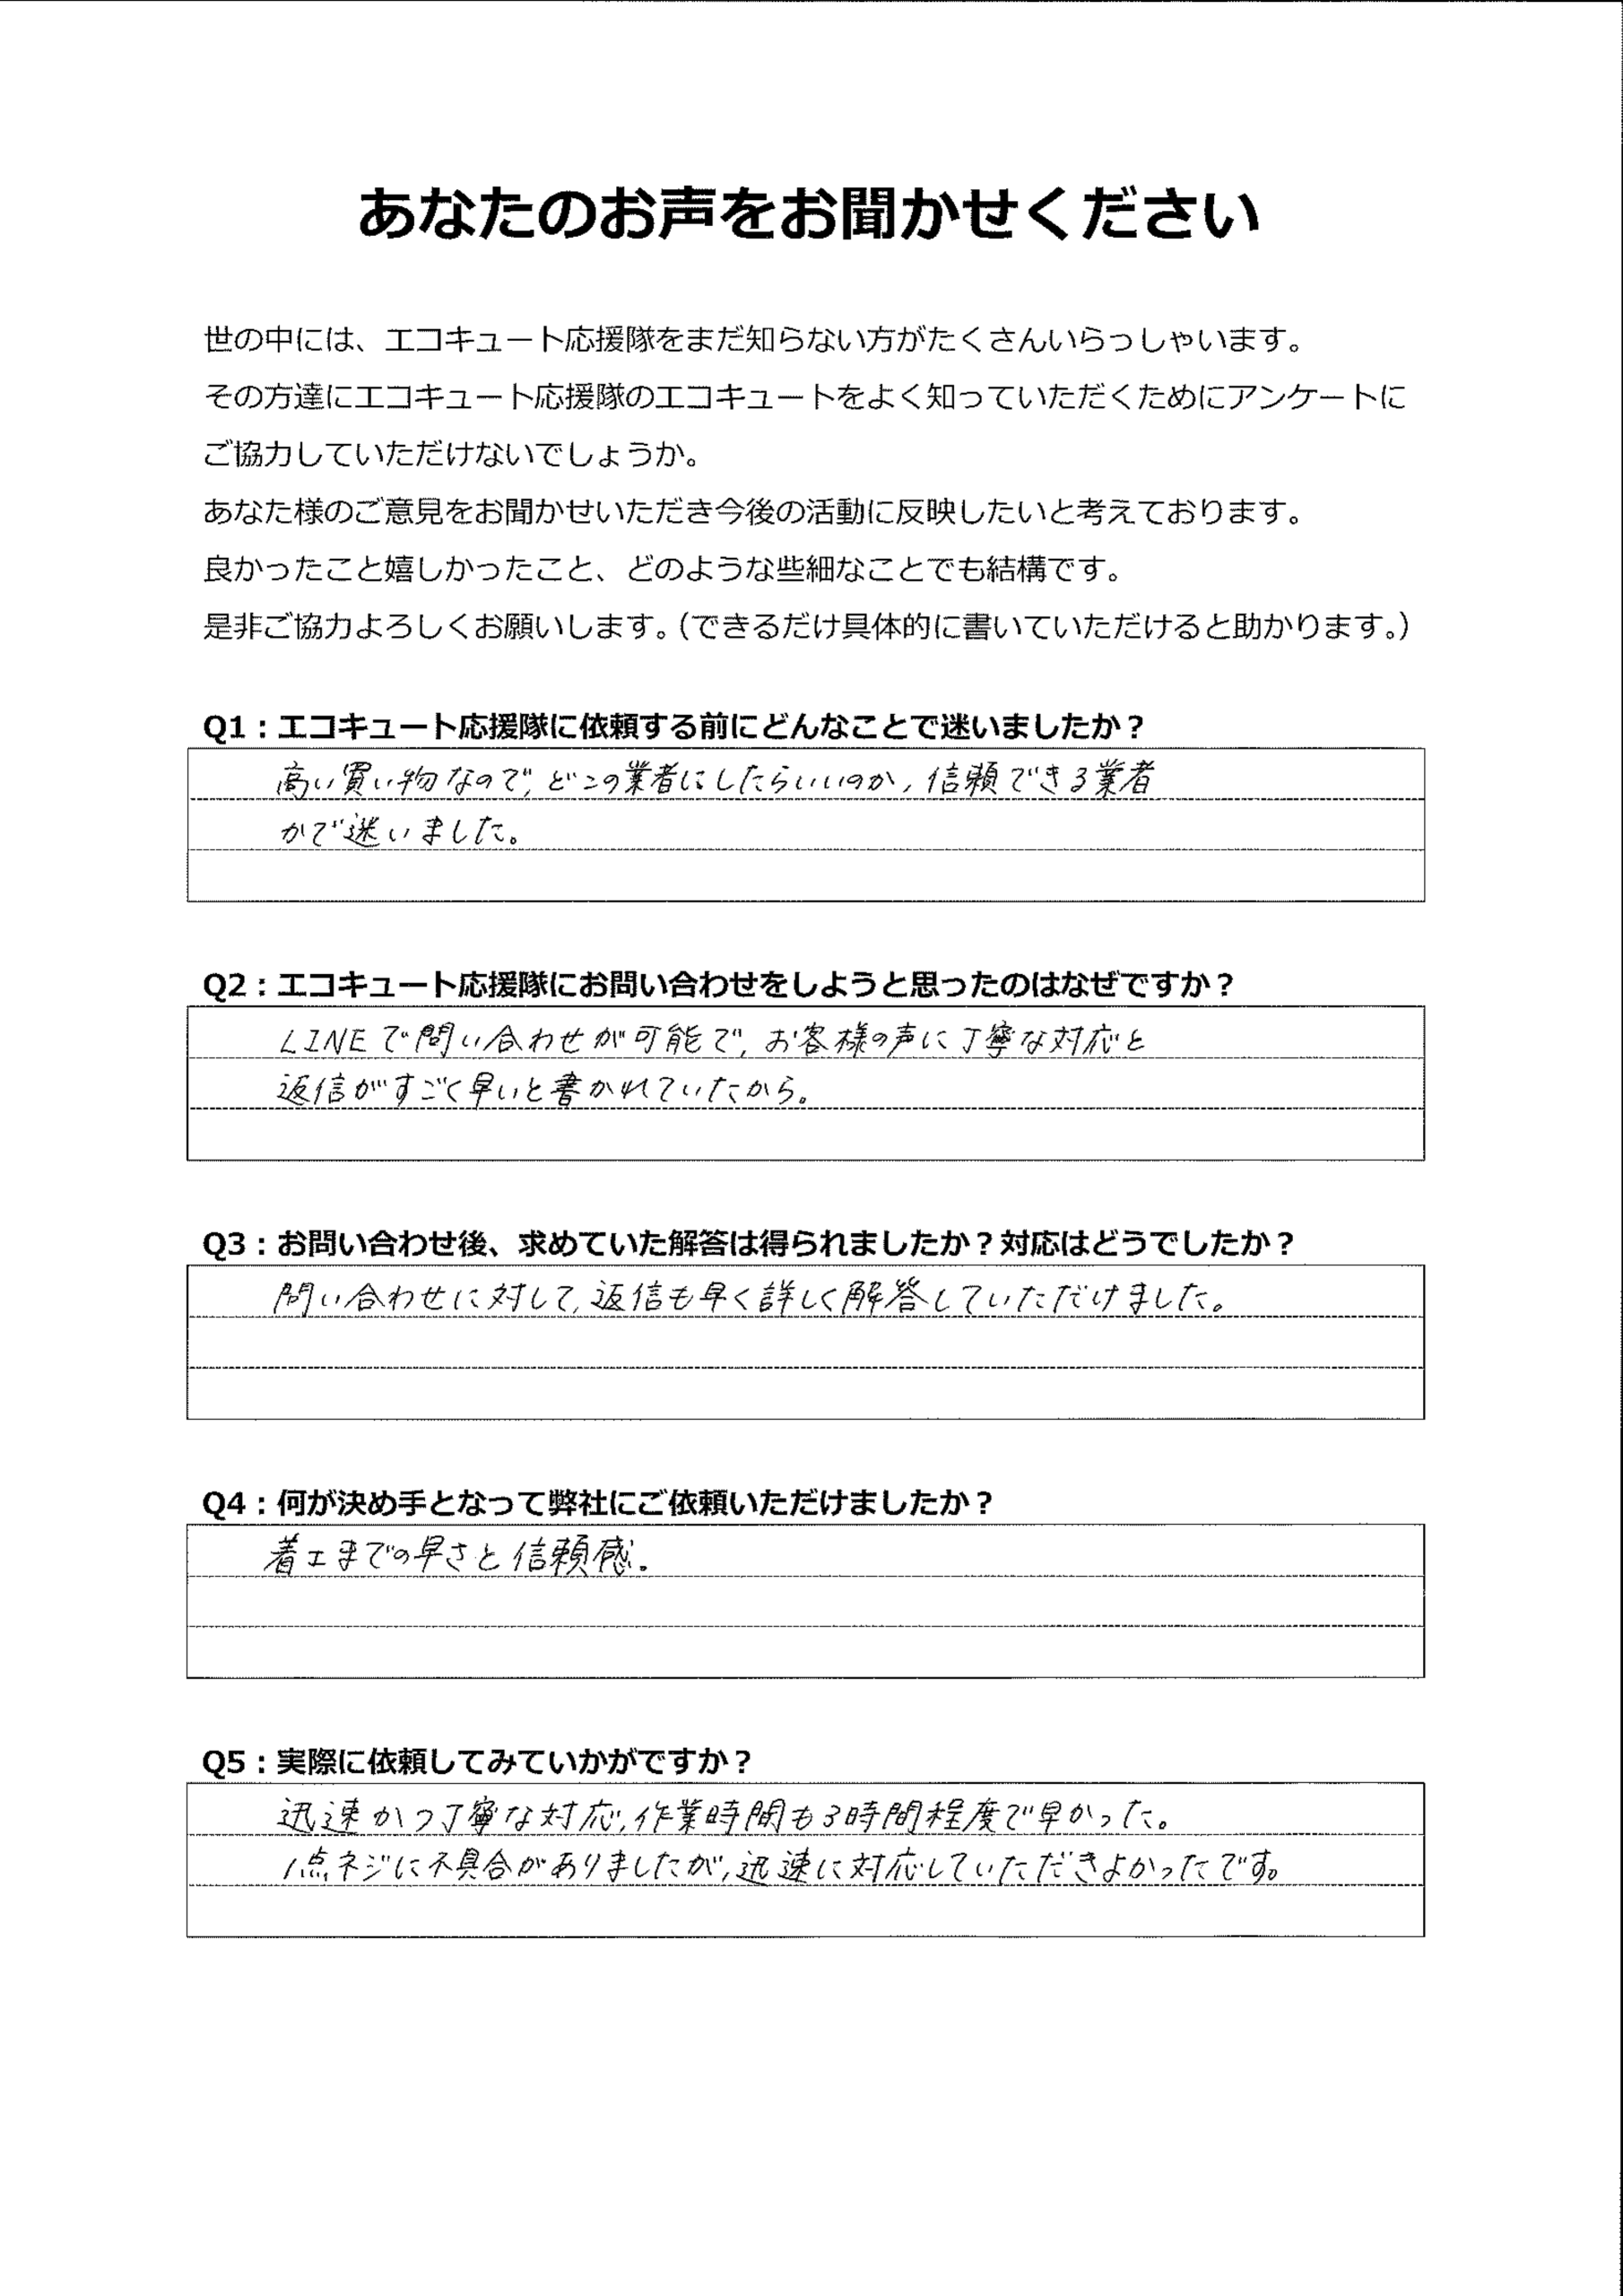 あなたのお声をお聞かせください
世の中には、エコキュート応援隊をまだ知らない方がたくさんいらっしゃいます。
その方達にエコキュート応援隊のエコキュートをよく知っていただくためにアンケートに
ご協力していただけないでしょうか。
あなた様のご意見をお聞かせいただき今後の活動に反映したいと考えております。
良かったこと嬉しかったこと、どのような些細なことでも結構です。
是非ご協力よろしくお願いします。（できるだけ具体的に書いていただけると助かります。）
Q1：エコキュート応援隊に依頼する前にどんなことで迷いましたか？
高い買い物なので、どこの業者にしたらいいのか、信頼できる業者
かで迷いました。
Q2：エコキュート応援隊にお問い合わせをしようと思ったのはなぜですか？
LINEで問い合わせが可能で、お客様の声に丁寧な対応と
返信がすごく早いと書かれていたから。
Q3：お問い合わせ後、求めていた解答は得られましたか？対応はどうでしたか？
問い合わせに対して、返信も早く詳しく解答していただけました。
Q4：何が決め手となって弊社にご依頼いただけましたか？
着工までの早さと信頼感。
Q5：実際に依頼してみていかがですか？
迅速かつ丁寧な対応、作業時間も3時間程度で早かった。
1点ネジに不具合がありましたが、迅速に対応していただきよかったです。